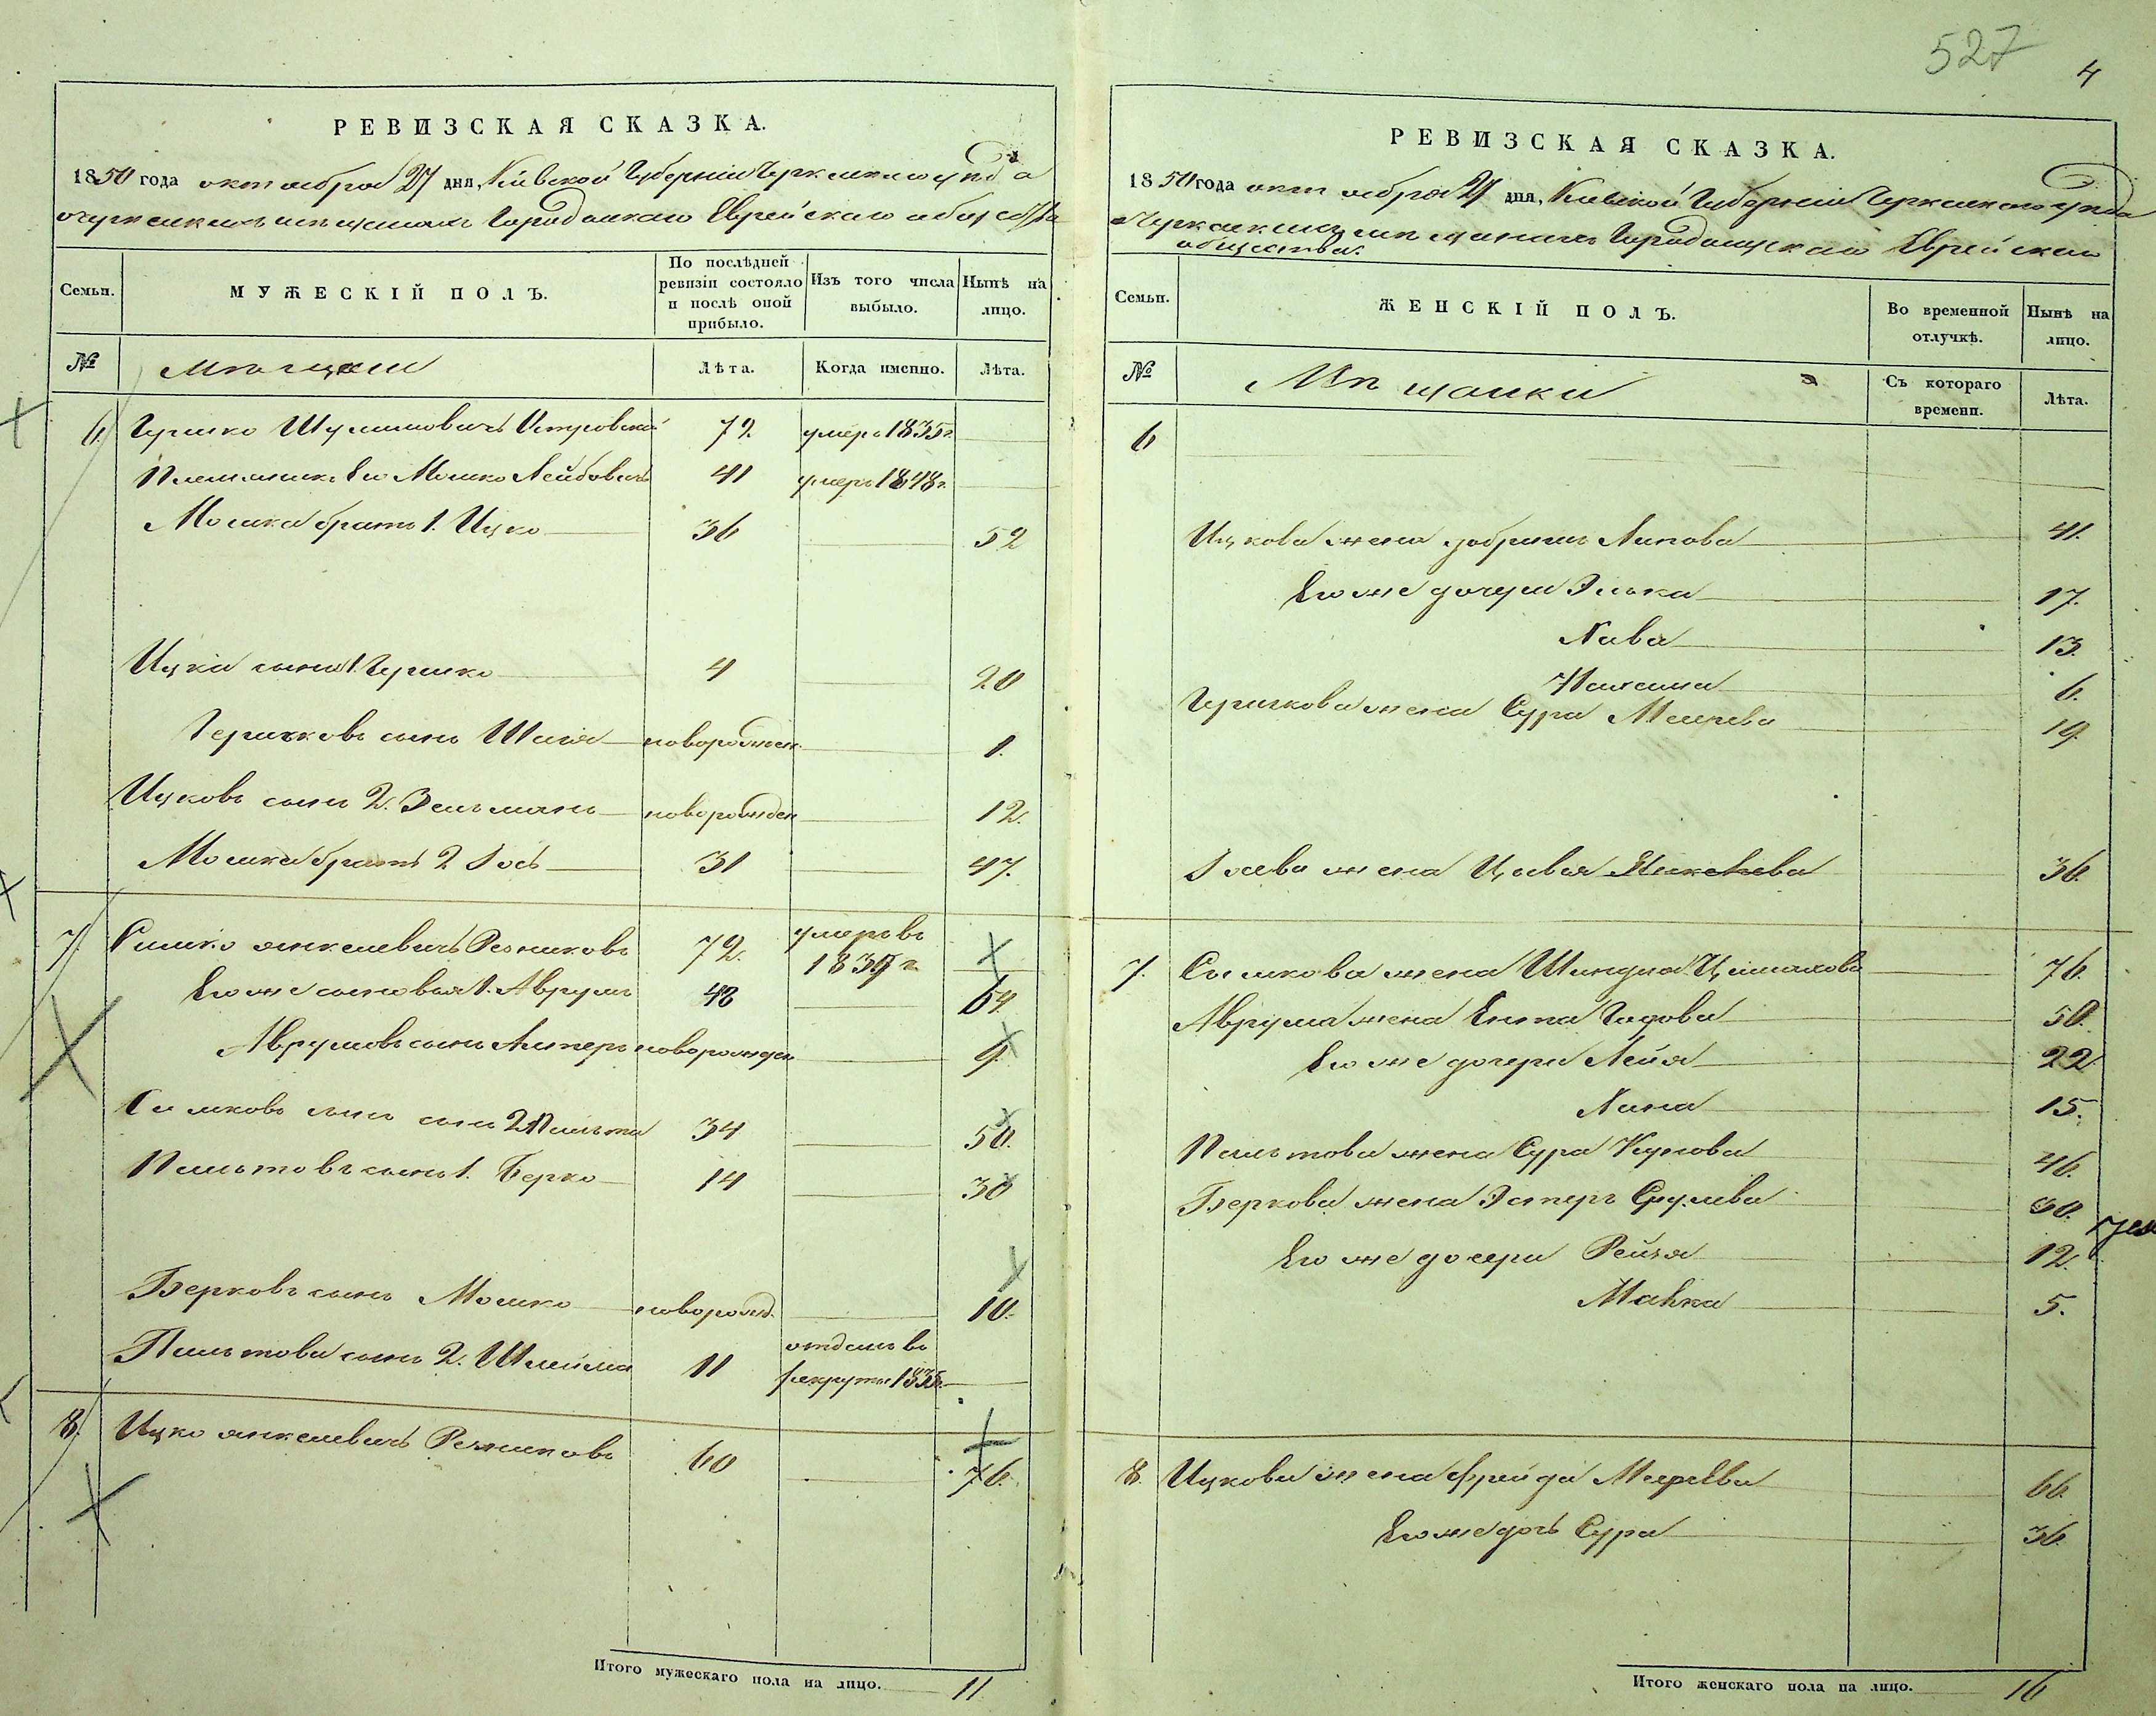 527
4
РЕВИЗСКАЯ СКАЗКА.
1850 года октября 27 дня, Кіевской Губерніи Черкаскаго уѣзда
о черкаскихъ мѣщанахъ Городискаго Еврейскаго общества
Семьи.
МУЖЕСКІЙ ПОЛЪ.
По послѣдней
ревизіи состояло
и послѣ оной
прибыло.
Изъ того числа
выбыло.
Нынѣ на
лицо.
№
Мѣщане
Лѣта.
Когда именно.
Лѣта.
6. Гершко Шулимовичъ 72. умеръ 1835 г.
Племянникъ Его Мошко Лейбовичъ 41 умеръ 1848 г.
Мошка братъ 1. Ицко 36 52
Ицки сынъ 1. Гершко 4 20
Гершковъ сынъ Шая новорожден. 1.
Ицковъ сынъ 2. Зельманъ новорожден 12.
Мошка братъ 2 Іось 31 47.
7. Симко Янкелевичъ Резниковъ 72. умеръ въ
1839 г.
Его же сыновья 1. Аврумъ 48 64.
Аврумовъ сынъ Альтеръ новорожден 9.
Симковъ сынъ 2 Пальта 34 50.
Пальтовъ сынъ 1. Берко 14 30
Берковъ сынъ Мошко новорожд. 10.
Пальтова сынъ 2. Шлейма 11 отданъ въ
рекруты 1835 г.
8. Ицко Янкелевичъ Резниковъ 60 76.
Итого мужескаго пола на лицо. 11
РЕВИЗСКАЯ СКАЗКА.
1850 года октября 27 дня, Кіевской Губерніи Черкаскаго уѣзда
о Черкаскихъ мѣщанахъ Еврейскаго
общества.
Семьи.
ЖЕНСКІЙ ПОЛЪ.
Во временной
отлучкѣ.
Нынѣ на
лицо.
№
Мѣщанки
Съ котораго
времени.
Лѣта.
6
Ицкова жена Добришъ Липова 41.
Его же дочери Элька 17.
Хава 13.
6.
Гершкова жена Сура Меерова 19.
Іосева жена Цивья 36.
7. Симкова жена Шиндля 76.
Аврума жена Ента Гадова 50.
Его же дочери Лейя 22.
Хана 15.
Пальтова жена Сура 46.
Беркова жена Эстеръ Срулева 30.
Его же дочери Рейзя 12.
Малка 5.
8. Ицкова жена Фрейда Меерева 66.
Его же дочь Сура 36.
Итого женскаго пола на лицо. 16